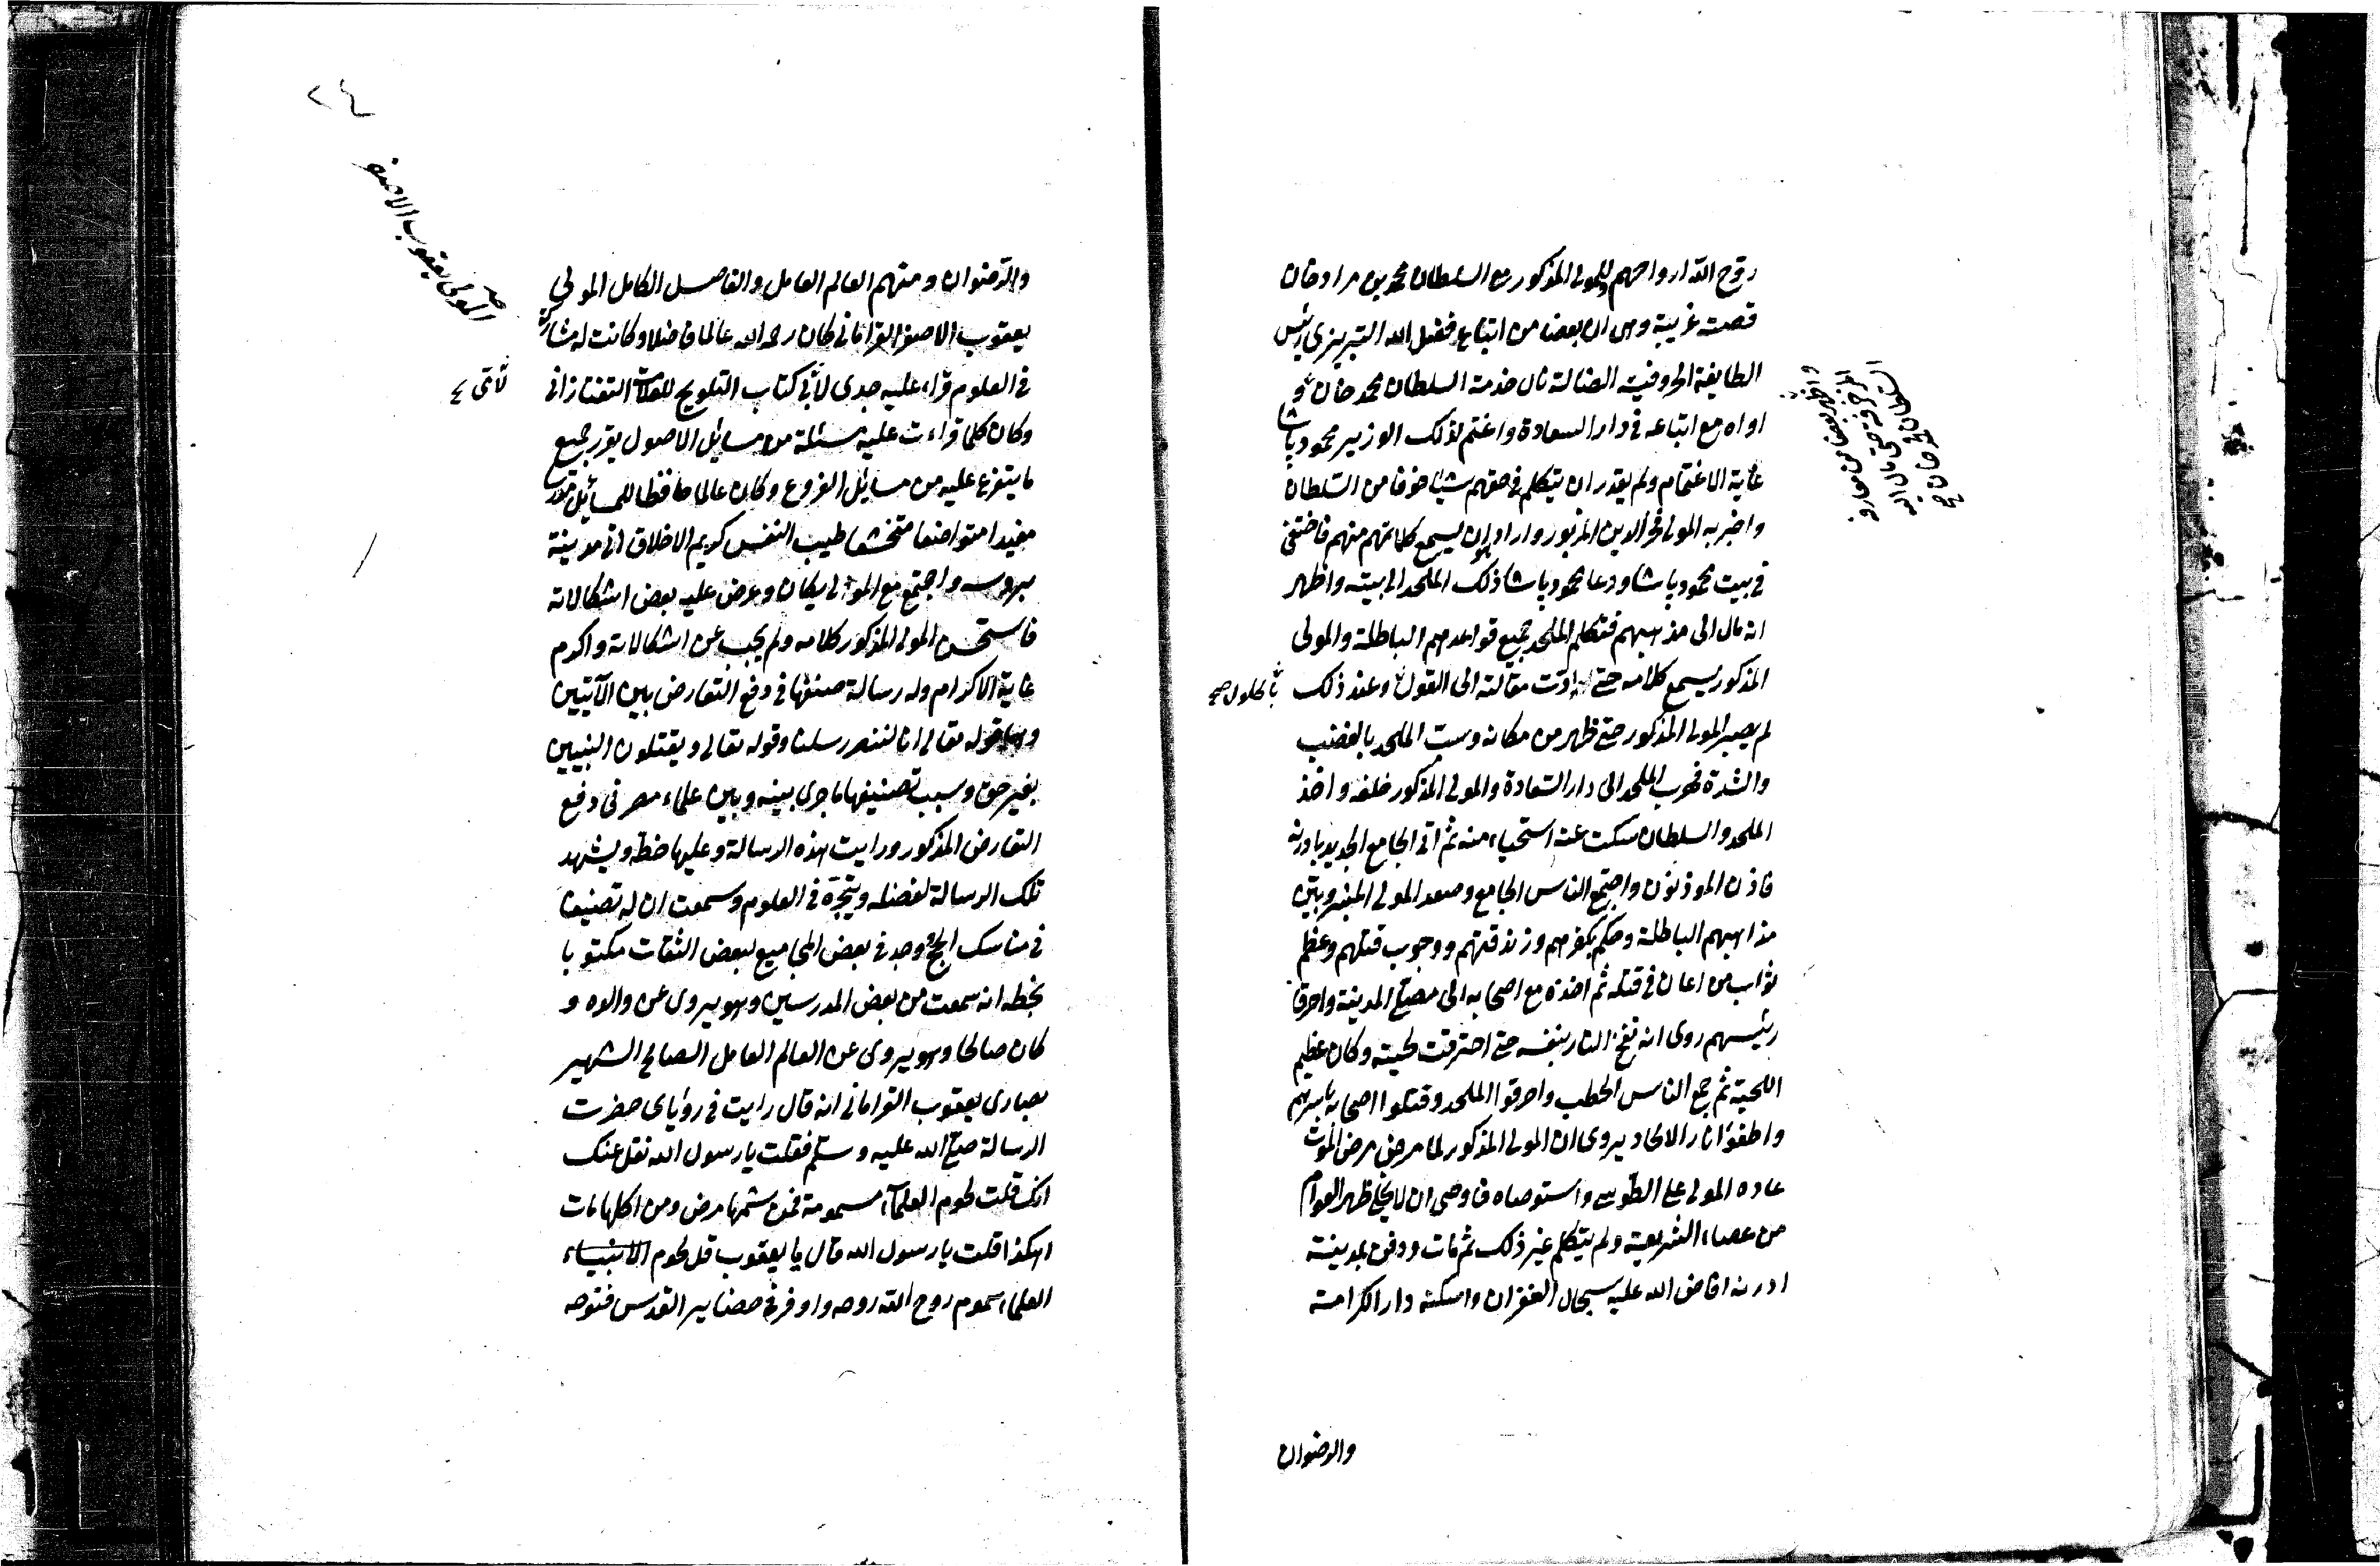 روح الله ارواحهم وللمولى المذكور مع السلطان محمد بن مراد خان
قصة غريبة وهى ان بعضا من اتباع فضل الله التبريزى رئيس
الطايفة الحروفية الضالة نال خدمة السلطان محمد خان و
اواه مع اتباعه فى دار السعادة واغتم لذلك الوزير محمود پاشا
غاية الاغتمام ولم يقدر ان يتكلم فى حقهم شيئا خوفا من السلطان
واخبر به المولى فخر الدين المزبور واراد هو ان يسمع كلماتهم منهم فاختفى
فى بيت محمود پاشا ودعا محمود پاشا ذلك الملحد الى بيته واظهر
انه مال الى مذهبهم فتكلم الملحد جميع قواعدهم الباطلة والمولى
المذكور يسمع كلامه حتى ادّت مقالته الى القول وعند ذلك
بالحلول صح
لم يصبر المولى المذكور حتى ظهر من مكانه وسب الملحد بالغضب
والشدة فهرب الملحد الى دار السعادة والمولى المذكور خلفه واخذ
الملحد والسلطان سكت عنه استحياء منه ثم اتى الجامع الجديد بادرنه
فاذن الموذنون واجتمع الناس الجامع وصعد المولى المنبر وبيّن
مذاهبهم الباطلة وحكم بكفرهم وزندقتهم ووجوب قتلهم وعظم
ثواب من اعان فى قتله ثم اخذه مع اصحابه الى مصلى المدينة واحرقا
رئيسهم روى انه نفخ النار بنفسه حتى احترقت لحيته وكان عظيم
اللحية ثم جمع الناس الحطب واحرقوا الملحد وقتلوا اصحابه باسرهم
واطفؤا نار الالحاد يروى ان المولى المذكور لما مرض مرض الموت
عاده المولى على الطوسى واستوصاه فاوصى ان لا يخلى ظهر العوام
من عصاء الشريعة ولم يتكلم غير ذلك ثم مات ودفن بمدينة
ادرنه افاض الله عليه سجال الغفران واسكنه دار الكرامة
والرضوان
المولى يعقوب الاصفر
والرضوان ومنهم العالم العامل والفاضل الكامل المولى
يعقوب الاصفر القرامانى كان رحمه الله عالما فاضلا وكانت له مشاركة
فى العلوم قراء عليه جدى لابى كتاب التلويح للعلامة التفتازانى
وكان كلما قراءت عليه مسئلة من مسايل الاصول يقرر جميع
ما يتفرع عليه من مسايل الفروع وكان عالما حافظا للمسائل
مفيدا متواضعا متخشعا طيب النفس كريم الاخلاق اتى مدينة
بروسه واجتمع مع المولى يكان وعرض عليه بعض اشكالاته
فاستحسن المولى المذكور كلامه ولم يجب عن اشكالاته واكرم
غاية الاكرام وله رسالة صنفها فى دفع التعارض بين الآيتين
وهما قوله تعالى انا لننصر رسلنا وقوله تعالى ويقتلون النبيين
بغير حق وسبب تصنيفها ما جرى بينه وبين علماء مصر فى دفع
التعارض المذكور ورايت هذه الرسالة وعليها خطه ويشهد
تلك الرسالة لفضله وتبحّره فى العلوم وسمعت ان له تصنيفا
فى مناسك الحج ووجد فى بعض المجاميع لبعض الثقات مكتوبا
بخطه انه سمعت من بعض المدرسين وهو يروى عن والده و
كان صالحا وهو يروى عن العالم العامل الصالح الشهير
بصارى يعقوب القرامانى انه قال رايت فى روياى حضرت
الرسالة صلى الله عليه وسلم فقلت يا رسول الله نقل عنك
انك قلت لحوم العلماء مسمومة فمن شمها مرض ومن اكلها مات
اهكذا قلت يا رسول الله قال يا يعقوب قل لحوم الانبياء
العلماء سموم روح الله روحه واوفر فى حضاير القدس فتوحه